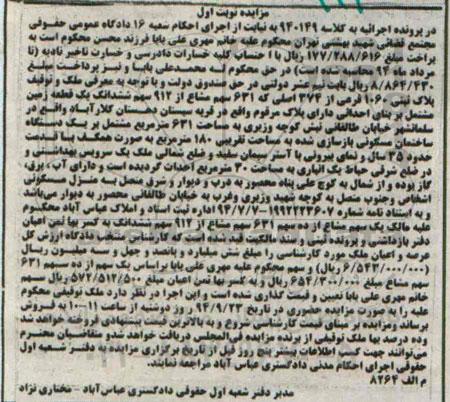 مزایده نوبت اول
در پرونده اجرائیه به کلاسه ۹۴۰۱۴۹ به نیابت از اجرای احکام شعبه ۱۶ دادگاه عمومی حقوقی
مجتمع قضائی شهید بهشتی تهران محکوم علیه خانم مهری علی بابا فرزند محسن محکوم است به
پرداخت مبلغ ۱۷۷/۲۸۸/۶۱۶ ریال با احتساب کلیه خسارات دادرسی و خسارت تاخیر تادیه (تا
مرداد ماه ۹۴ محاسبه شده است) در حق محکوم له محمدعلی بابیا و نیز پرداخت مبلغ
۸/۸۶۴/۴۳۰ ریال بابت نیم عشر دولتی در حق صندوق دولت و با توجه به معرفی ملک و توقیف
پلاک ثبتی ۱۰۶۰ فرعی از ۳۷۴ اصلی که ۶۳۱ سهم مشاع از ۹۱۲ سهم ششدانگ یک قطعه زمین
مشتمل بر بنای احداثی دارای پلاک مرقوم واقع در قریه سیستان دهستان کلارآباد واقع در
سلمانشهر خیابان طالقانی نبش کوچه وزیری به مساحت ۶۳۱ مترمربع مشتمل بر یک دستگاه
ساختمان مسکونی بازسازی شده به مساحت تقریبی ۱۸۰ مترمربع به صورت همکف با قدمت
حدود ۳۵ سال و نمای بیرونی با آستر سیمان سفید و ضلع شمالی ملک یک سرویس بهداشتی و
در ضلع شرقی حیاط یک انباری به مساحت ۳۰ مترمربع احداث گردیده است و دارای آب، برق،
گاز بوده و از شمال به کوچ علی پناه محصور به درب و دیوار و شرق متصل به منزل مسکونی
اشخاص و جنوب متصل به کوچه شهید وزیری وغرب به خیابان طالقانی محصور به دیوار می‌باشد
و به استناد نامه شماره ۱۹۹۲۲۲۳۶۰۷-۹۴/۷/۷ اداره ثبت اسناد و املاک عباس آباد محکوم
علیه مالک یک سهم مشاع از ده سهم ۶۳۱ سهم مشاع از ۹۱۲ سهم ششدانگ به کسر بها ثمن اعیان
دفتر بازداشتی و پرونده ثبتی و سند مالکیت قید شده است که کارشناس منتخب دادگاه ارزش کل
عرصه و اعیان ملک مورد کارشناسی را مبلغ شش میلیارد و پانصد و چهل و سه میلیون ریال
(۶/۵۴۳/۰۰۰/۰۰۰ ریال) و سهم محکوم علیه مهری علی بابا براساس یک سهم از ده سهم ۶۳۱
سهم مشاع مبلغ ۶۵۴/۳۰۰/۰۰۰ ریال و به کسر بها ثمن اعیان مبلغ ۵۷۲/۵۱۲/۵۰۰ ریال سهم
خانم مهری علی بابا تعیین و قیمت گذاری شده است و این اجرا در نظر دارد ملک توقیفی محکوم
علیه را به صورت مزایده حضوری در تاریخ ۹۴/۹/۲۳ روز دوشنبه از ساعت ۱۰-۱۱ به فروش
برساند ومزایده بر مبنای قیمت کارشناسی شروع و به بالاترین قیمت پیشنهادی فروخته خواهد شد
وده درصد بها ملک توقیفی از برنده مزایده فی‌المجلس دریافت خواهد شدو متقاضیان محترم
می‌توانند جهت کسب اطلاعات بیشتر پنج روز قبل از تاریخ برگزاری مزایده به دفتر شعبه اول
حقوقی اجرای احکام مدنی دادگستری عباس آباد مراجعه نمایند.
م الف ۸۲۶۴
مدیر دفتر شعبه اول حقوقی دادگستری عباس‌آباد - مختاری نژاد